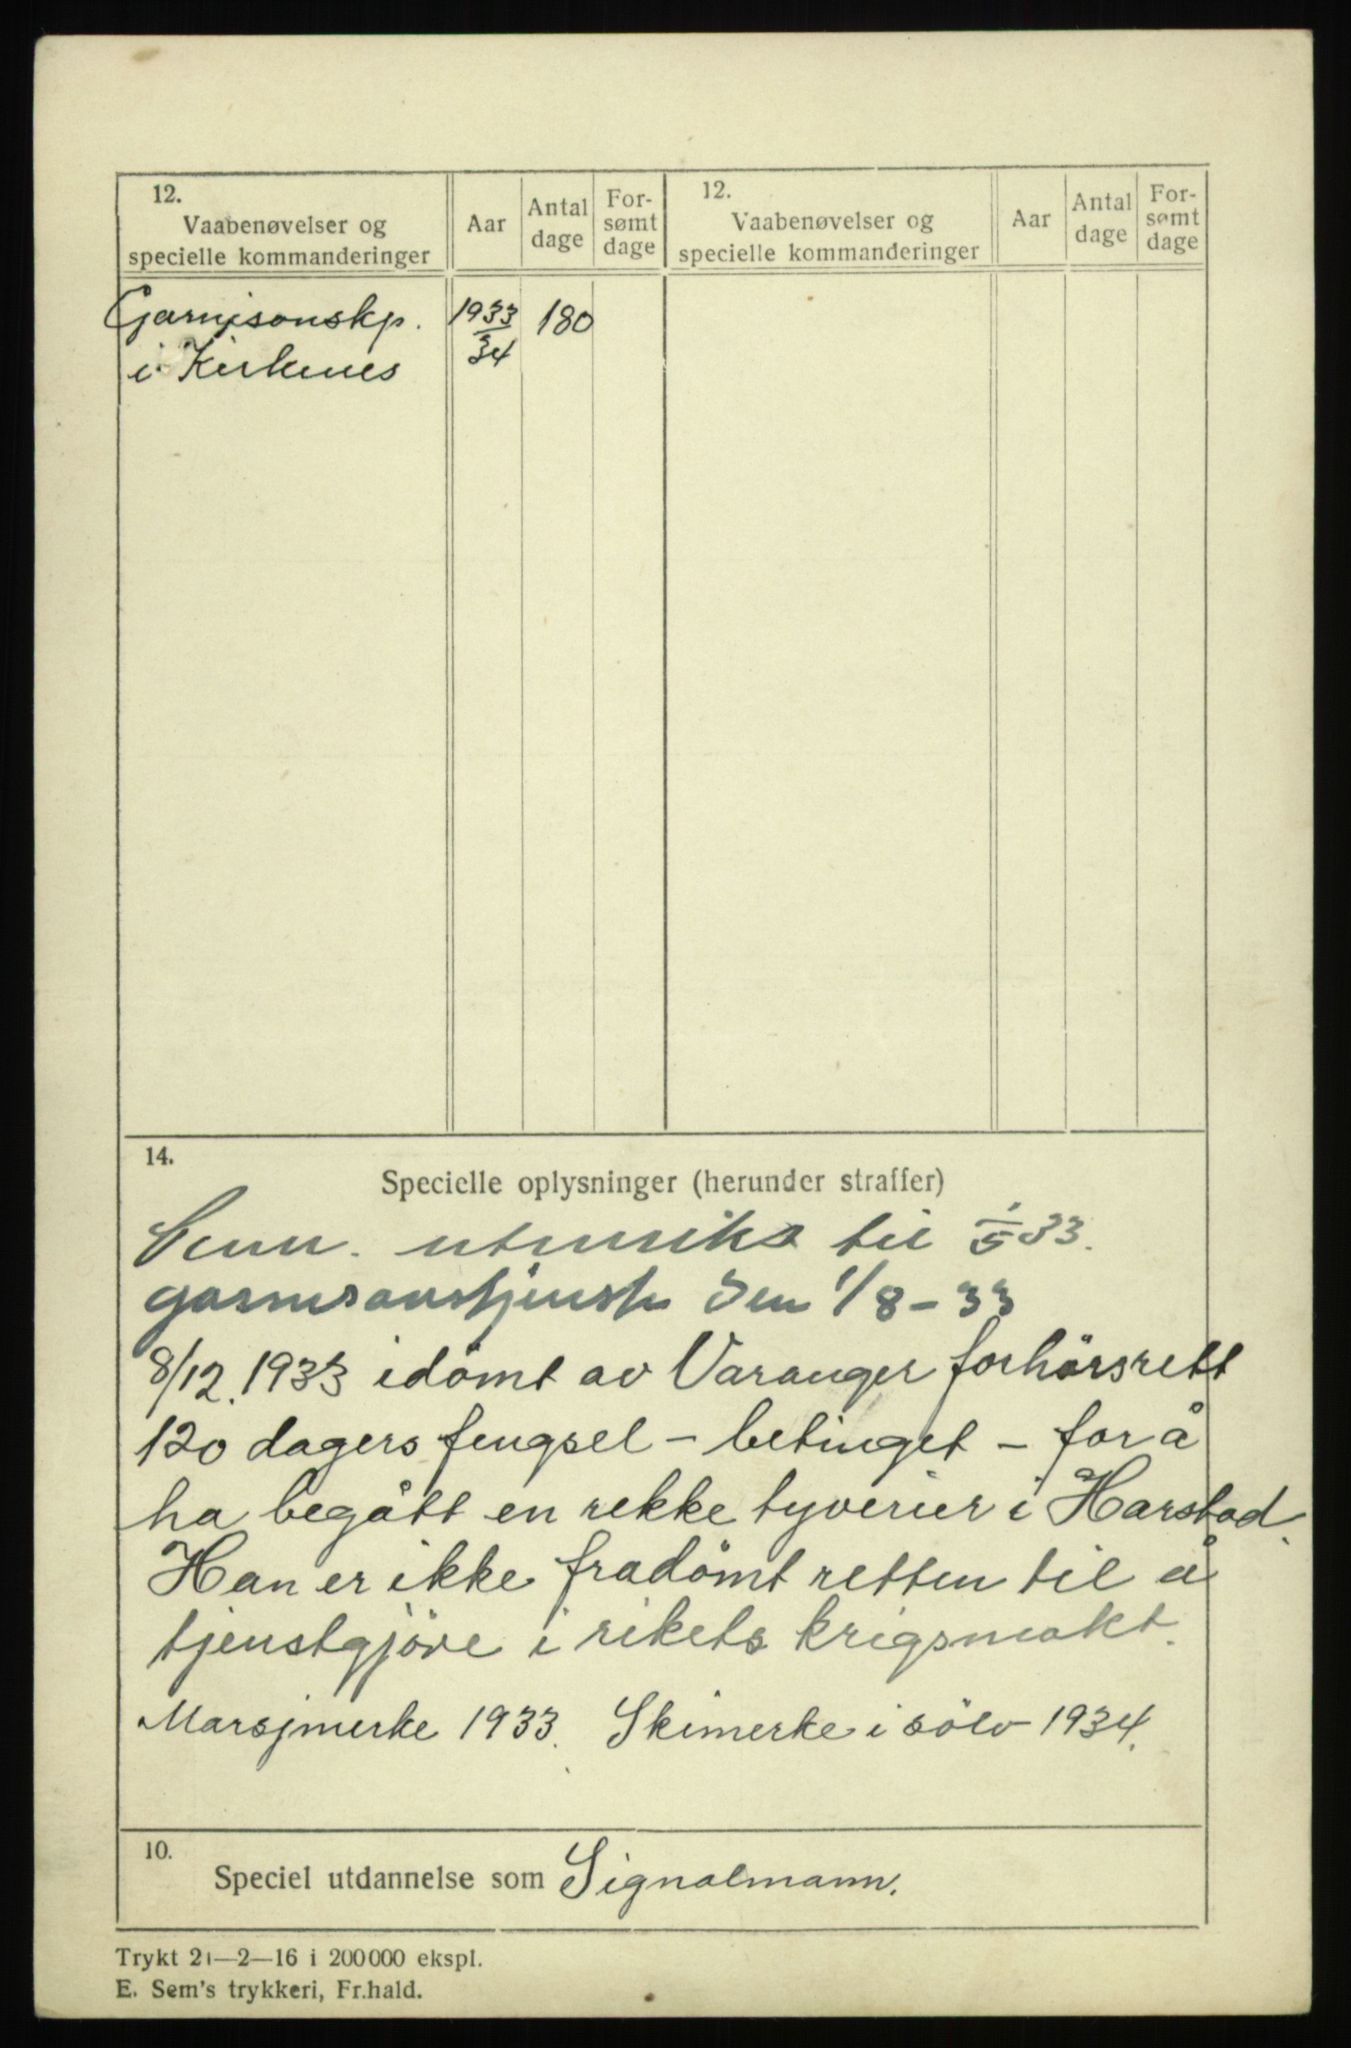 12.
Vaabenøvelser og
specielle kommanderinger
Aar
Antal
dage
For-
sømt
dage
12.
Vaabenøvelser og
specielle kommanderinger
Aar
Antal
dage
For-
sømt
dage
Garnisonskp. 1933 180
i Kirkenes 34
14.
Specielle oplysninger (herunder straffer)
utenriks til 1/5 33.
garnisonstjeneste den 1/8-33
8/12. 1933 idömt av Varanger forhörsrett
120 dagers fengsel - betinget - for å
ha begått en rekke tyverier i Harstad.
Han er ikke fradömt retten til å
tjenstgjöre i rikets krigsmakt.
Marsjmerke 1933. Skimerke i sölv 1934.
10.
Speciel utdannelse som Signalmann.
Trykt 21—2—16 i 200000 ekspl.
E. Sem's trykkeri, Fr.hald.